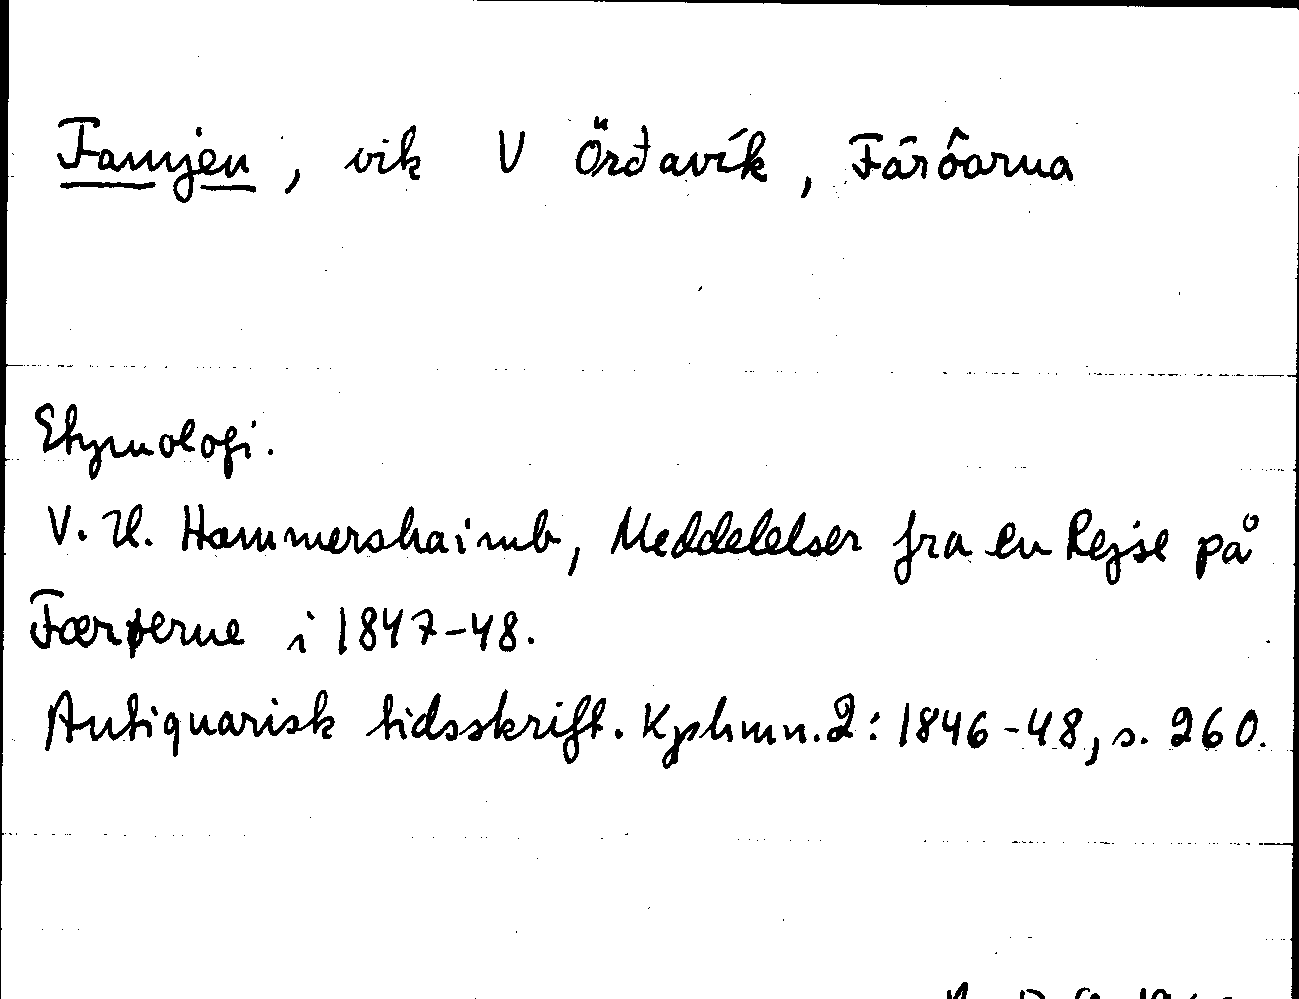 Famjen, vik V Örđavík, Färöarna
Etymologi.
V. U. Hammershaimb, Meddelelser fra en Rejse på
Færøerne i 1847-48.
Antiquarisk tidsskrift. Kphmn. 2: 1846-48, s. 260.